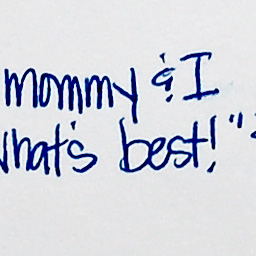 mommy & I
what's best!"